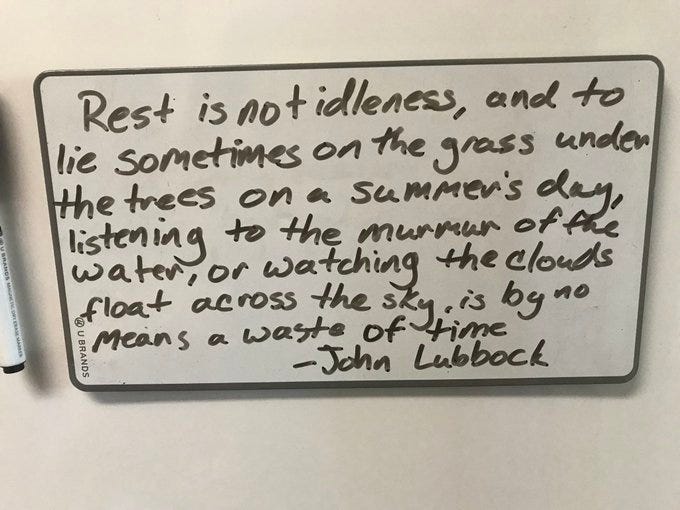 Rest is not idleness, and to
lie sometimes on the grass under
the trees on a summer's day,
listening to the murmur of the
water, or watching the clouds
float across the sky, is by no
means a waste of time
-John Lubbock
U BRANDS
U BRANDS